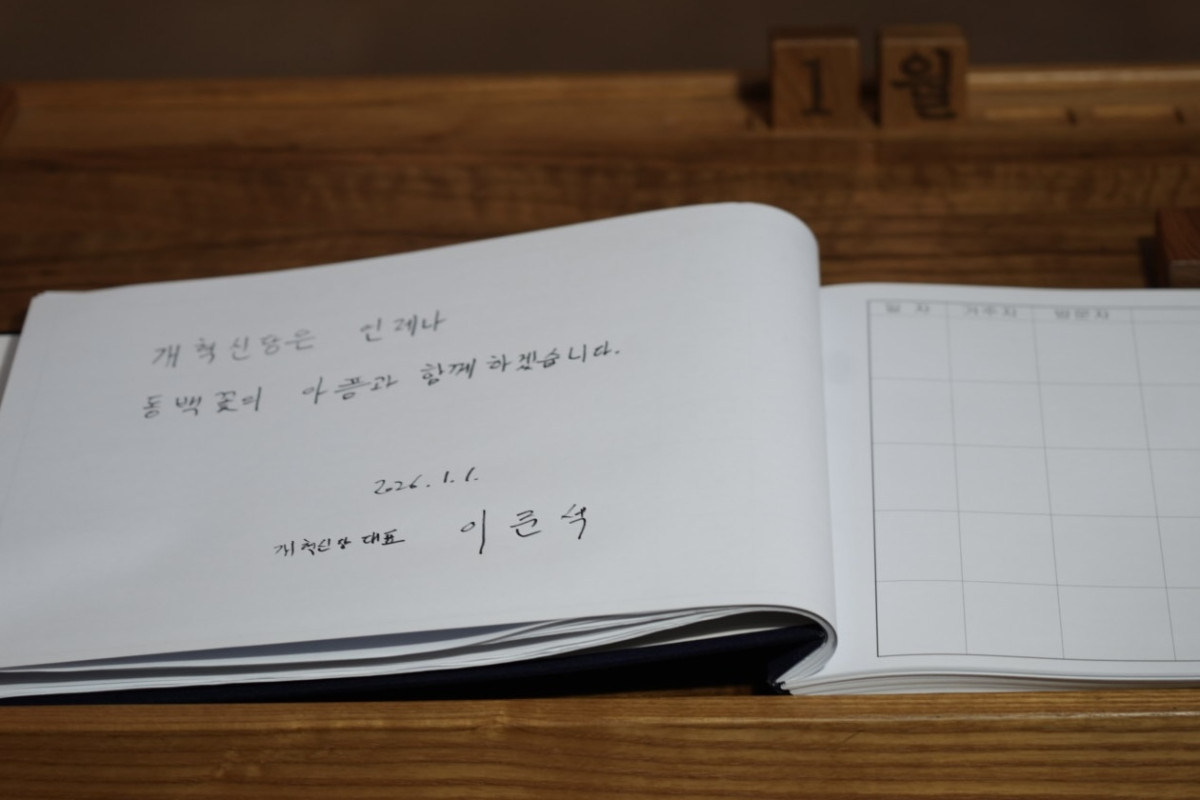 1월
개혁신당은 언제나
동백꽃의 아픔과 함께 하겠습니다.
2026. 1. 1.
개혁신당 대표 이준석
일 자 거주지 방문자